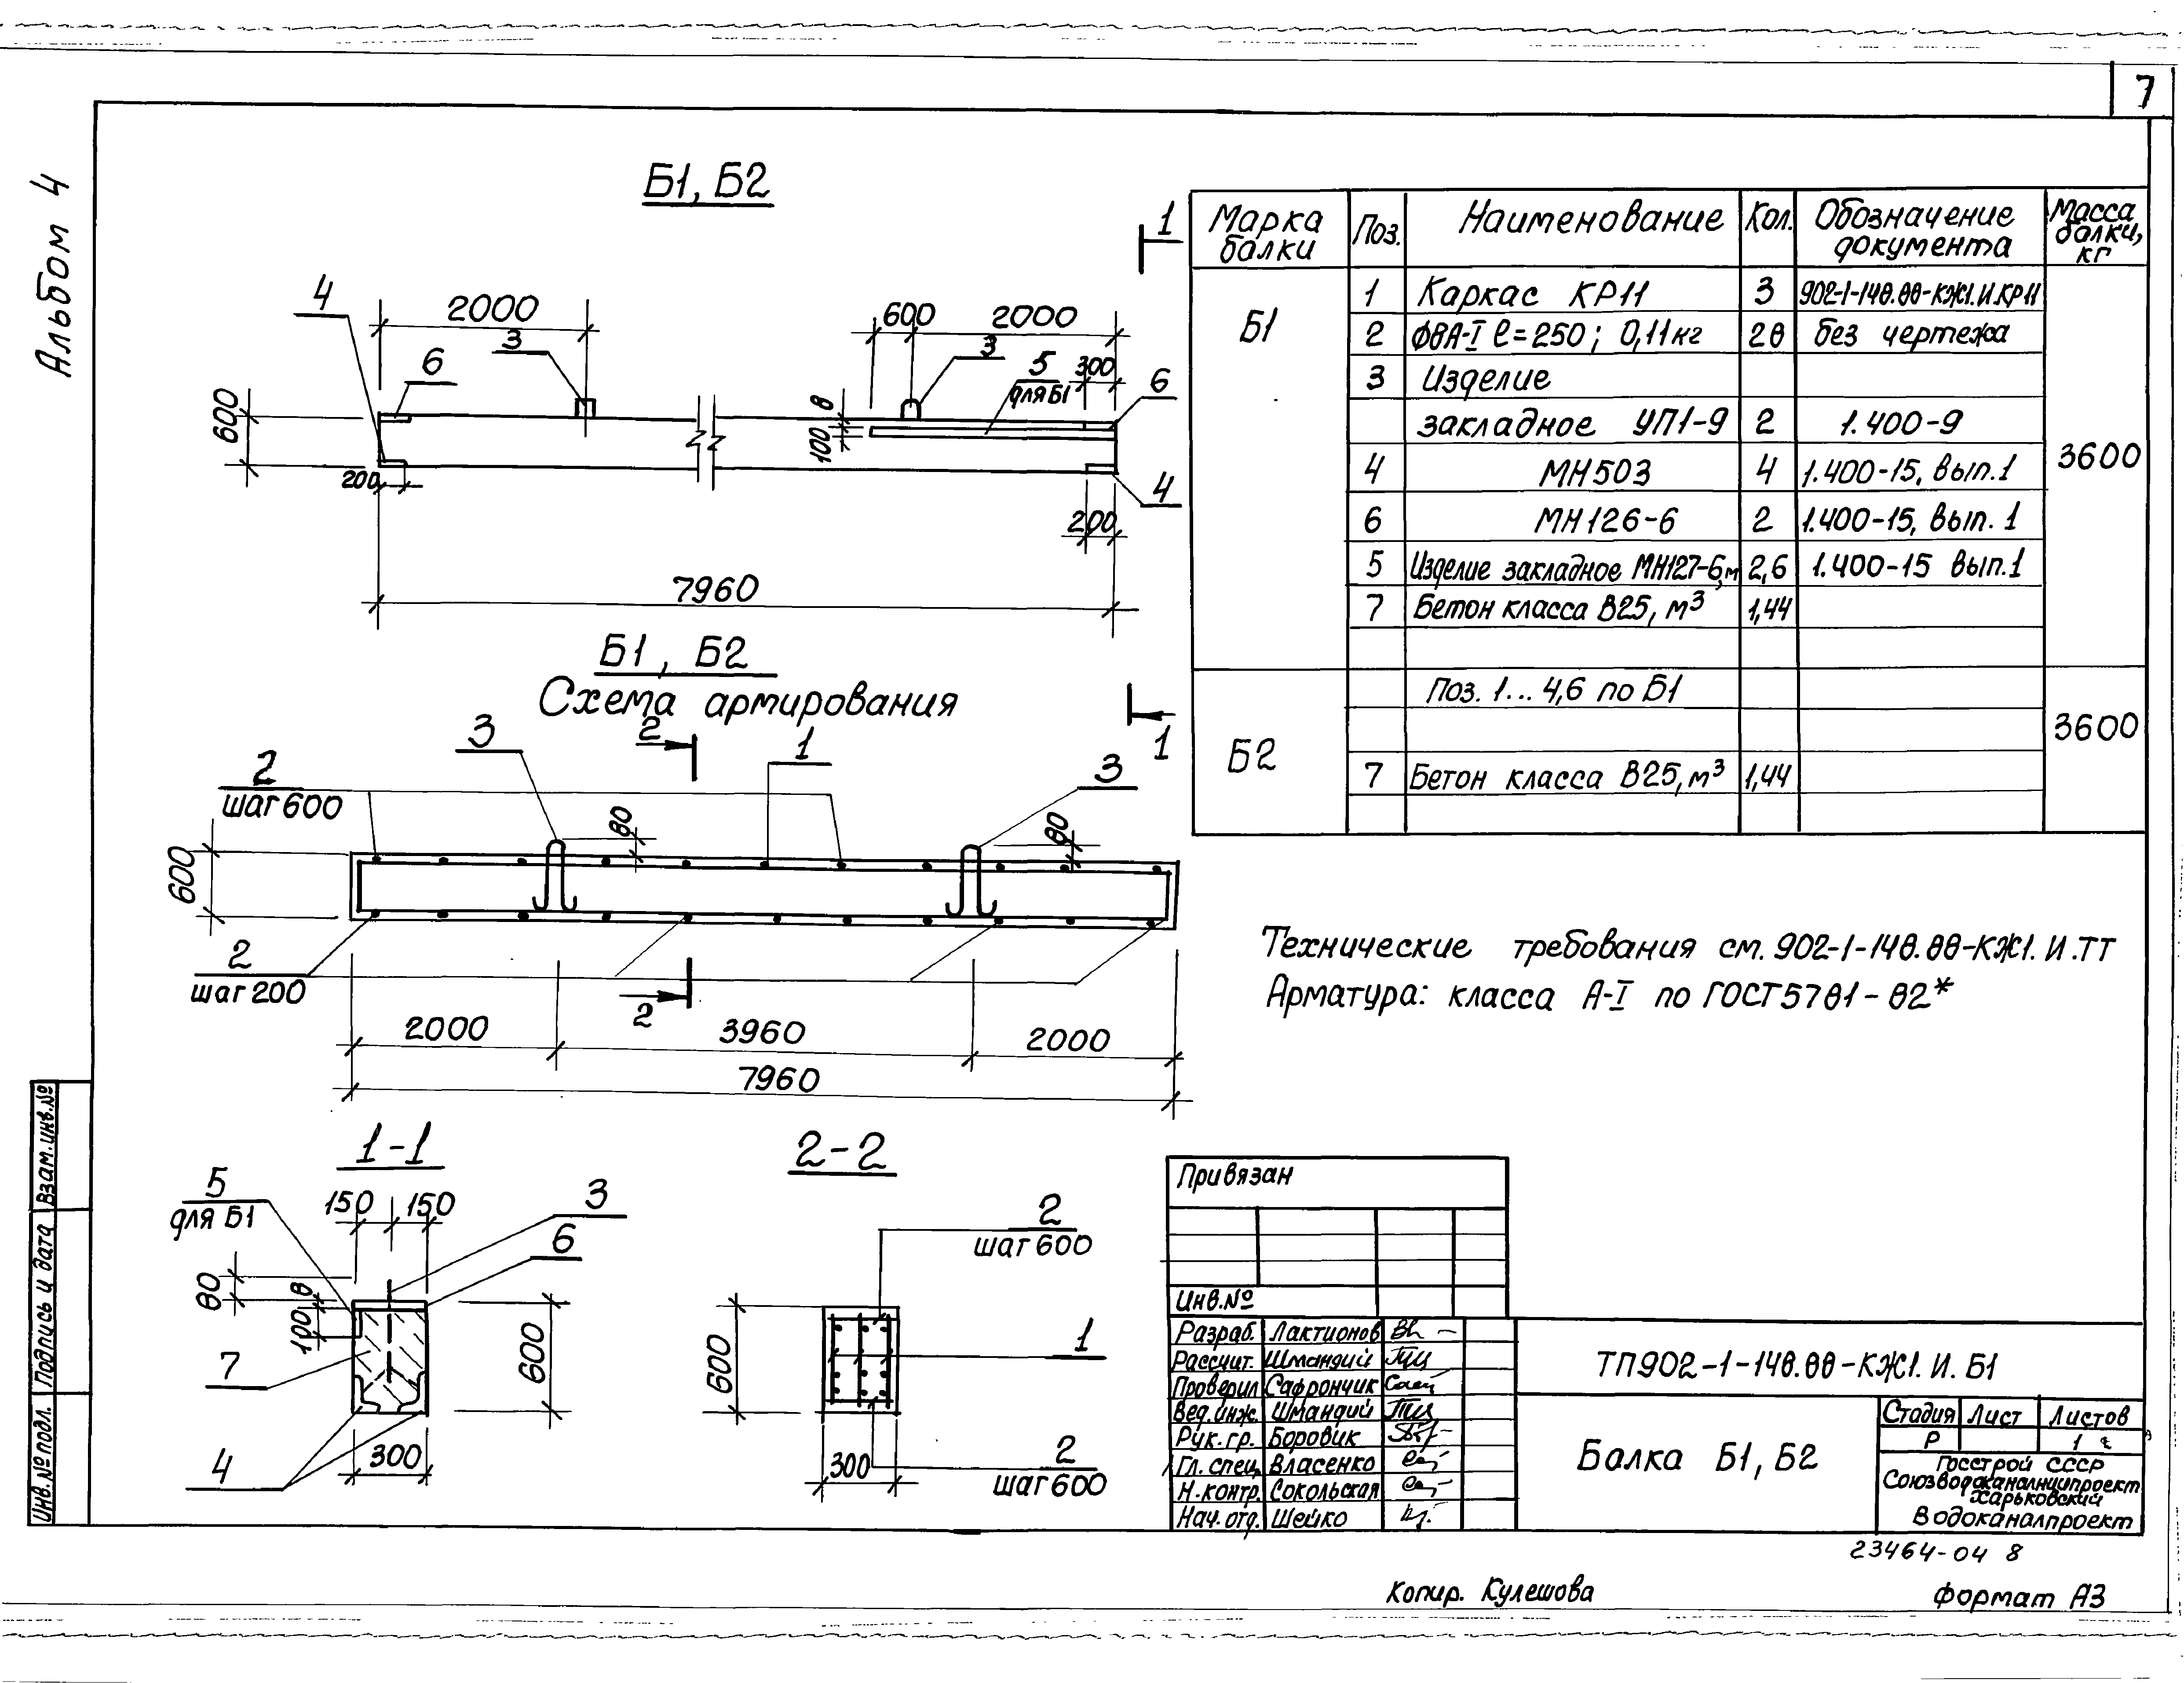 7
Альбом 4
Б1, Б2
1
4
2000
3
6
600
2000
3
5
для Б1
300
6
8
100
600
200
4
200
7960
Б1, Б2
Схема армирования
1
3
2
1
2
шаг 600
80
80
3
600
2
шаг 200
2
2000
3960
2000
7960
1-1
5
для Б1
150
150
3
6
80
8
100
7
600
4
300
2-2
2
шаг 600
600
1
300
2
шаг 600
Марка балки
Поз.
Наименование
Кол.
Обозначение документа
Масса балки, кг
Б1
1 Каркас КР11 3 902-1-148.88-КЖ1.И.КР11
2 Ф8А-I ℓ=250; 0,11кг 28 без чертежа
3 Изделие
закладное УП1-9 2 1.400-9
3600
4 МН503 4 1.400-15, вып.1
6 МН126-6 2 1.400-15, вып. 1
5 Изделие закладное МН127-6,м 2,6 1.400-15 вып.1
7 Бетон класса В25, м³ 1,44
Поз. 1... 4,6 по Б1
Б2
3600
7 Бетон класса В25, м³ 1,44
Технические требования см. 902-1-148.88-КЖ1.И.ТТ
Арматура: класса А-I по ГОСТ5781-82*
Взам. инв.№
Подпись и дата
Инв.№ подл.
Привязан
Инв.№
Разраб. Лактионов
Рассчит. Шмандий
Проверил Сафрончик
Вед.инж. Шмандий
Рук.гр. Боровик
Гл. спец. Власенко
Н.контр. Сокольская
Нач. отд. Шейко
ТП902-1-148.88-КЖ1.И.Б1
Балка Б1, Б2
Стадия Лист Листов
Р 1
Госстрой СССР
Союзводоканалниипроект
Харьковский
Водоканалпроект
23464-04 8
Копир. Кулешова
Формат А3